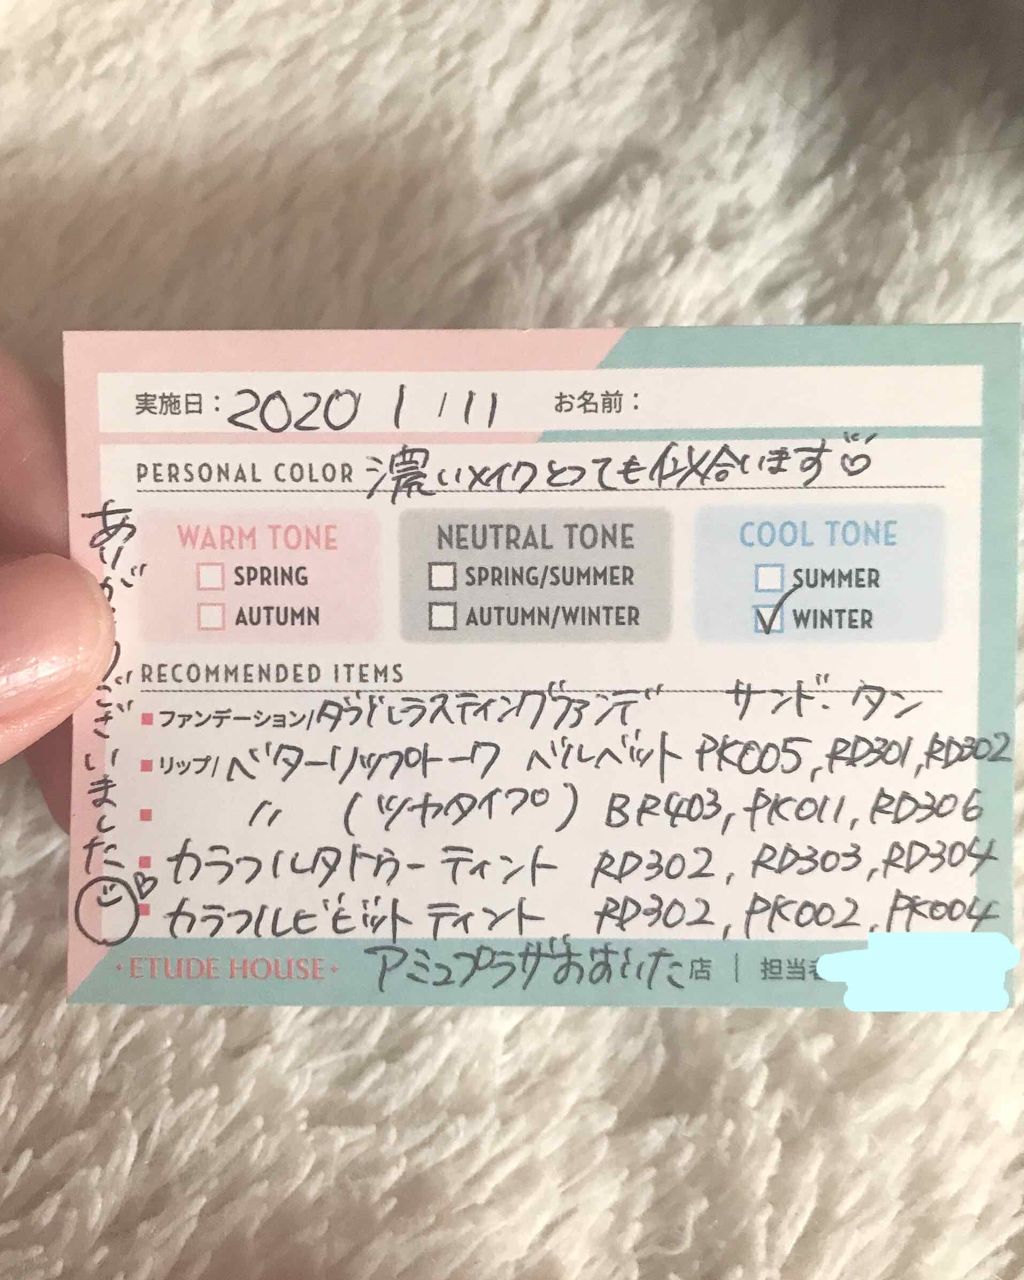 実施日：2020 1/11 お名前：
PERSONAL COLOR 濃いメイクとっても似合います
WARM TONE
SPRING
AUTUMN
NEUTRAL TONE
SPRING/SUMMER
AUTUMN/WINTER
COOL TONE
SUMMER
WINTER
RECOMMENDED ITEMS
ファンデーション/ダブルラスティングファンデ サンド・タン
リップ/ベターリップトーク ベルベット PK005, RD301, RD302
〃 (ツヤタイプ) BR403, PK011, RD306
カラフルタトゥーティント RD302, RD303, RD304
カラフルビビットティント RD302, PK002, PK004
ありがとうございました
ETUDE HOUSE アミュプラザおおいた店 | 担当